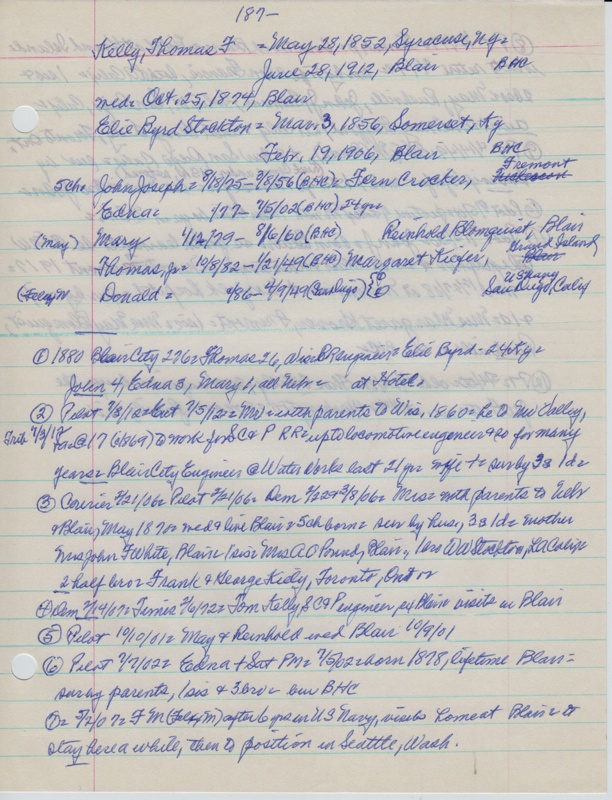 187-
Kelly, Thomas F = May 28, 1852, Syracuse, Ny=
June 28, 1912, Blair BHC
med= Oct. 25, 1874, Blair
Elie Byrd Stockton = Mar. 3, 1856, Somerset, Ky
Febr. 19, 1906, Blair BHC
Fremont
5 ch= John Joseph = 8/18/75 - 3/8/56 (BHC) = Fern Crocker,
Edna = 1/77 - 7/5/02 (BHC) 24 yrs
(May) Mary 4/12/79 - 8/6/60 (BHC) Reinhold Blomquist, Blair
Thomas, Jr = 10/8/82 - 1/21/49 (BHC) Margaret Kiefer, Grand Island,
US Navy
Donald = 2/86 - 4/9/49 (San Diego) San Diego, Calif
① 1880 Blair City 276 = Thomas 26, Engineer = Elie Byrd - 24 Ky =
John 4, Edna 3, Mary 1, all Nebr = at Hotel.
② Pilot 7/3/12 = 7/5/12 = with parents to Wis, 1860 = to Mo Valley,
Trib 7/3/12 Ia = @ 17 (1869) to work for S C & P RR = up to locomotive engineer & so for many
years = Blair City Engineer @ Water Works last 21 yr = wife + = sur by 3s 1d =
③ Courier 2/21/06 = Pilot 2/21/06 = Dem 2/22 & 3/8/06 = Mrs = with parents to Nebr
& Blair, May 1870 = med & live Blair = 5 ch born = surv by hus, 3s 1d = mother
Mrs John F White, Blair = 1 sis = Mrs A O Pound, Blair, 1 bro W W Stockton, LA Calif =
2 half bro = Frank & George Kedy, Toronto, Ont
④ Dem 3/14/07 = Times 3/6/72 = Tom Kelly, S C & P engineer, visits in Blair
⑤ Pilot 10/10/01 = May & Reinhold wed Blair 10/9/01
⑥ Pilot 7/7/02 = Edna + Sat PM = 7/5/02 = born 1878, lifetime Blair =
surv by parents, 1 sis & 3 bro = bur BHC
⑦ = 5/2/07 = F M after 6 yrs in US Navy, visits home at Blair = to
stay here a while, then to position in Seattle, Wash.